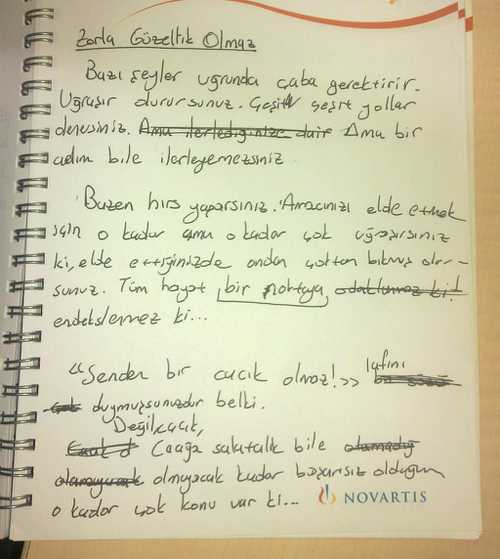 Zorla Güzellik Olmaz
Bazı şeyler uğrunda çaba gerektirir.
Uğraşır durursunuz. Çeşit çeşit yollar
denersiniz. Ama ilerlediğinize dair Ama bir
adım bile ilerleyemezsiniz
Bazen hırs yaparsınız. Amacınızı elde etmek
için o kadar ama o kadar çok uğraşırsınız
ki, elde ettiğinizde ondan çoktan bıkmış olur-
sunuz. Tüm hayat bir noktaya odaklanmaz ki!
endekslenmez ki...
"Senden bir cacık olmaz!>> lafını
duymuşsunuzdur belki.
Değil cacık,
Cacığa salatalık bile
olmayacak kadar başarısız olduğum
o kadar çok konu var ki...
NOVARTIS